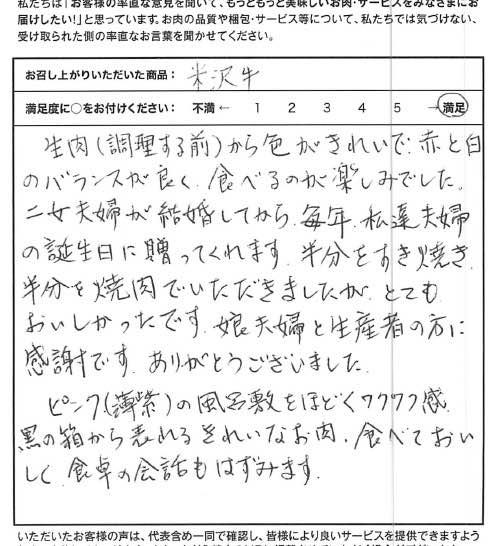 私たちは「お客様の率直な意見を聞いて、もっともっと美味しいお肉・サービスをみなさまにお
届けしたい!」と思っています。お肉の品質や梱包・サービス等について、私たちでは気づけない、
受け取られた側の率直なお言葉を聞かせてください。
お召し上がりいただいた商品: 米沢牛
満足度に○をお付けください: 不満 ← 1 2 3 4 5 → 満足
生肉(調理する前)から色がきれいで、赤と白
のバランスが良く、食べるのが楽しみでした。
二女夫婦が結婚してから、毎年、私達夫婦
の誕生日に贈ってくれます。半分をすき焼き、
半分を焼肉でいただきましたが、とても
おいしかったです。娘夫婦と生産者の方に
感謝です。ありがとうございました。
ピンク(薄紫)の風呂敷をほどくワクワク感、
黒の箱から表れるきれいなお肉、食べておい
しく、食卓の会話もはずみます。
いただいたお客様の声は、代表含め一同で確認し、皆様により良いサービスを提供できますよう